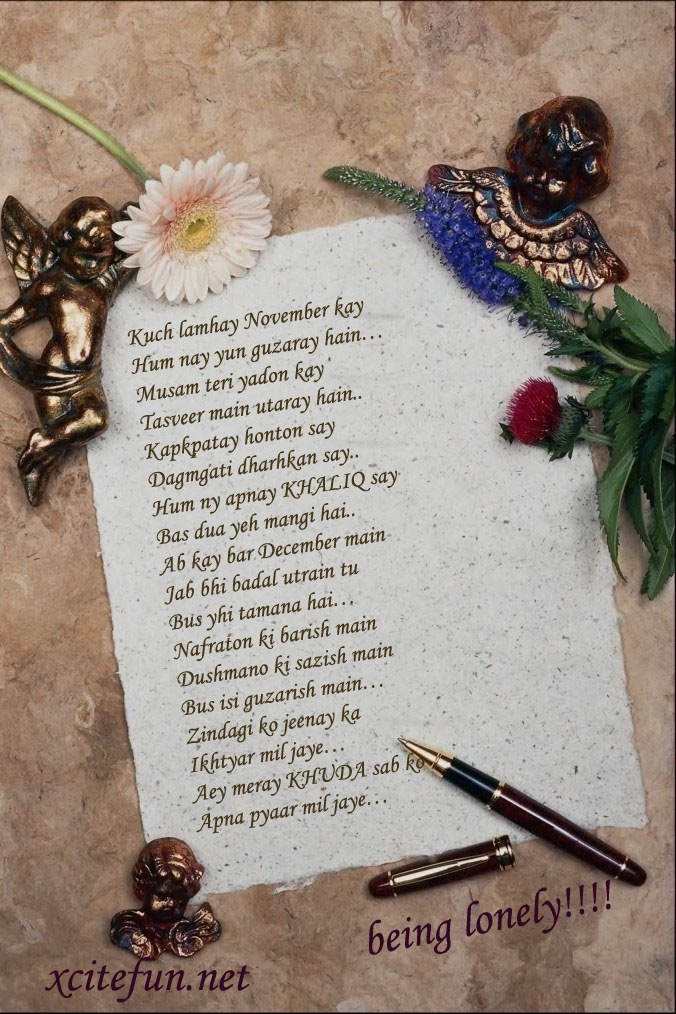 Kuch lamhay November kay
Hum nay yun guzaray hain...
Musam teri yadon kay
Tasveer main utaray hain..
Kapkpatay honton say
Dagmgati dharhkan say..
Hum ny apnay KHALIQ say
Bas dua yeh mangi hai..
Ab kay bar December main
Jab bhi badal utrain tu
Bus yhi tamana hai...
Nafraton ki barish main
Dushmano ki sazish main
Bus isi guzarish main...
Zindagi ko jeenay ka
Ikhtyar mil jaye...
Aey meray KHUDA sab ko
Apna pyaar mil jaye...
being lonely!!!!
xcitefun.net